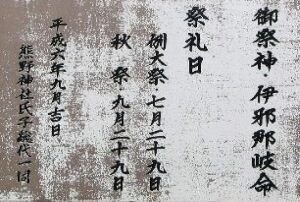 御祭神・伊邪那岐命
祭礼日
例大祭・七月二十九日
秋祭・九月二十九日
平成六年九月吉日
熊野神社氏子総代一同